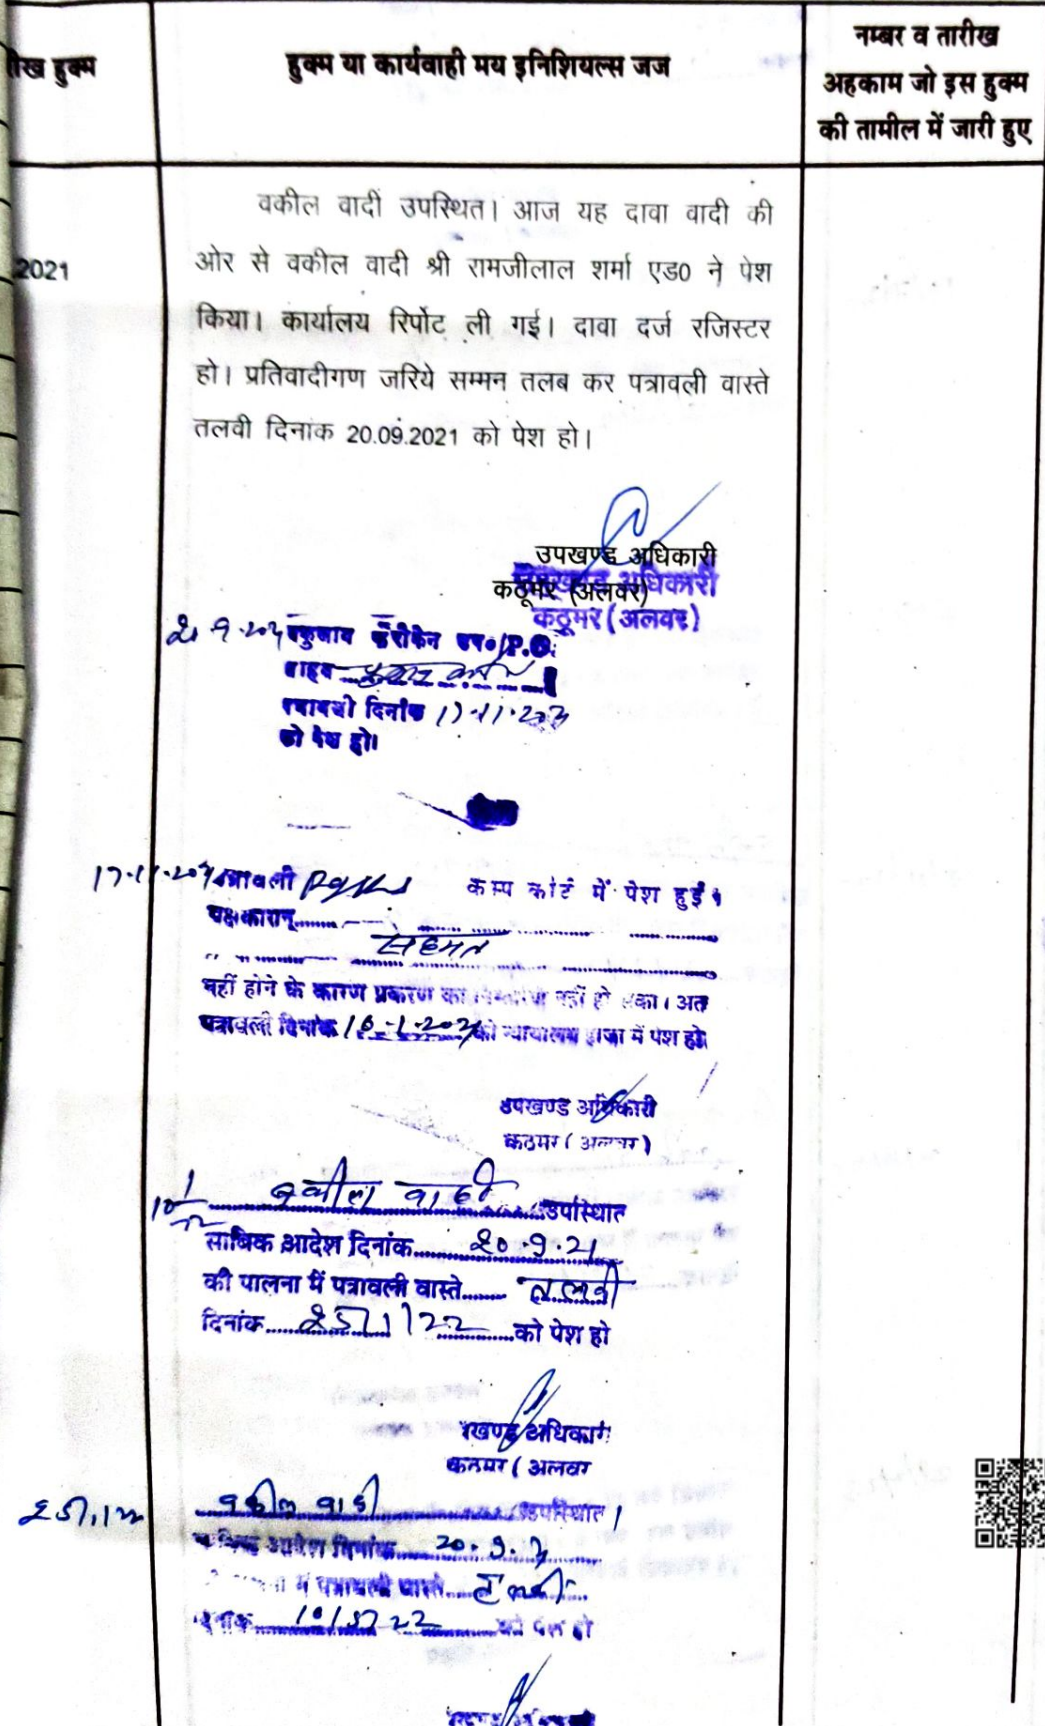 ीख हुक्म
हुक्म या कार्यवाही मय इनिशियल्स जज
नम्बर व तारीख
अहकाम जो इस हुक्म
की तामील में जारी हुए
वकील वादी उपस्थित। आज यह दावा वादी की
2021
ओर से वकील वादी श्री रामजीलाल शर्मा एड0 ने पेश
किया। कार्यालय रिर्पोट ली गई। दावा दर्ज रजिस्टर
हो। प्रतिवादीगण जरिये सम्मन तलब कर पत्रावली वास्ते
तलवी दिनांक 20.09.2021 को पेश हो।
उपखण्ड अधिकारी
कठूमर (अलवर)
उपखण्ड अधिकारी
कठूमर (अलवर)
P.O.
दिनांक 17.11.202
को पेश हो।
17.11.20 पत्रावली कैम्प कोर्ट में पेश हुई।
पक्षकारान्
सहमत
नहीं होने के कारण प्रकरण का नहीं हो सका। अत
पत्रावली दिनांक को न्यायालय हाजा में पेश हो
उपखण्ड अधिकारी
कठूमर (अलवर)
वकील वादी उपस्थित
साबिक आदेश दिनांक 20.9.21
की पालना में पत्रावली वास्ते तलवी
दिनांक 25/1/22 को पेश हो
खण्ड अधिकारी
कठूमर (अलवर
25.1.22 वकील वादी उपस्थित।
आदेश दिनांक 20.9.21
में पत्रावली वास्ते तलवी
को पेश हो